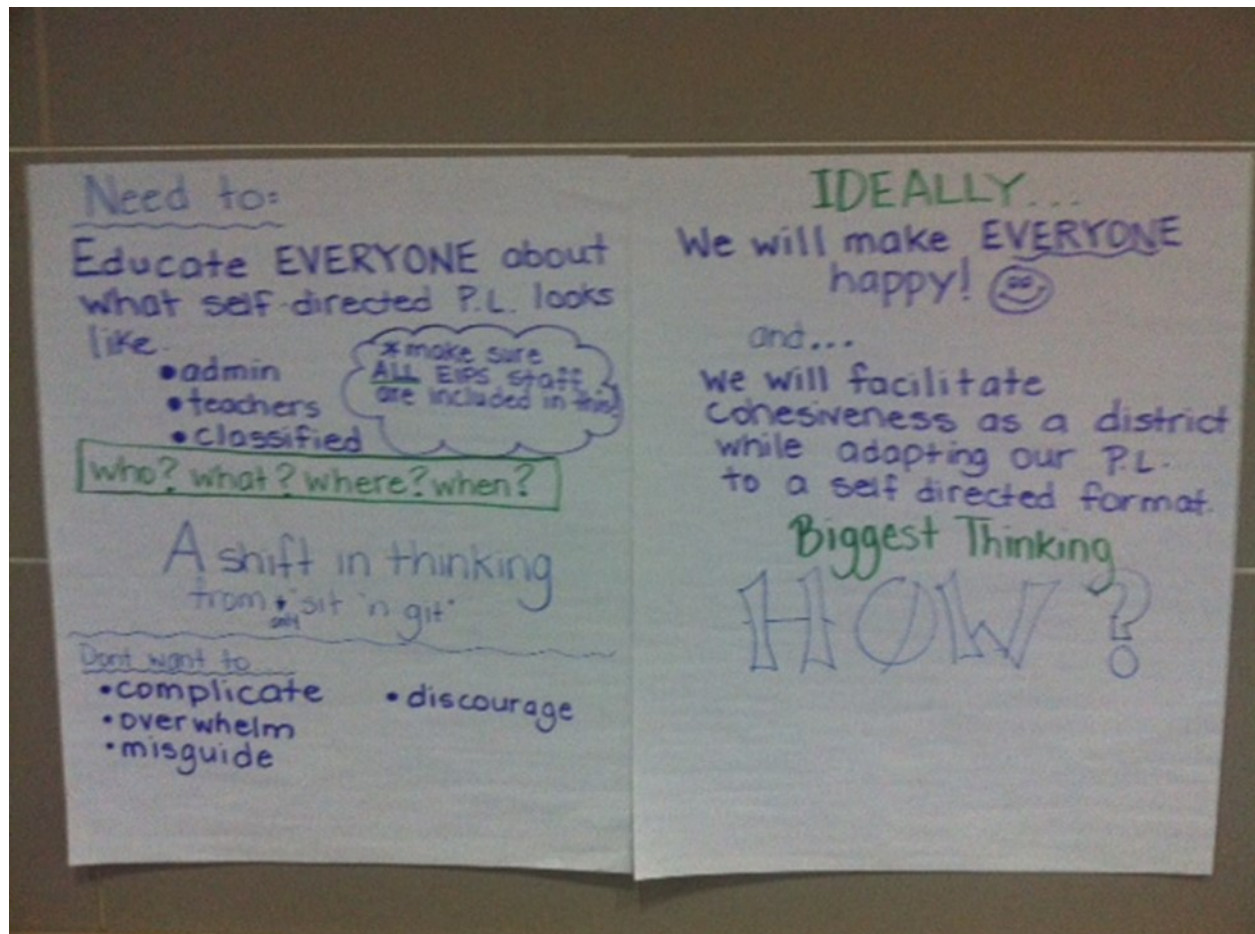 Need to:
Educate EVERYONE about
what self-directed P.L. looks
like.
• admin
• teachers
• classified
*make sure
ALL EIPS staff
are included in this
who? what? where? when?
A shift in thinking
from "sit 'n git"
only
Dont want to
• complicate
• overwhelm
• misguide
• discourage
IDEALLY...
We will make EVERYONE
happy!
and...
we will facilitate
cohesiveness as a district
while adapting our P.L.
to a self directed format.
Biggest Thinking
HOW?